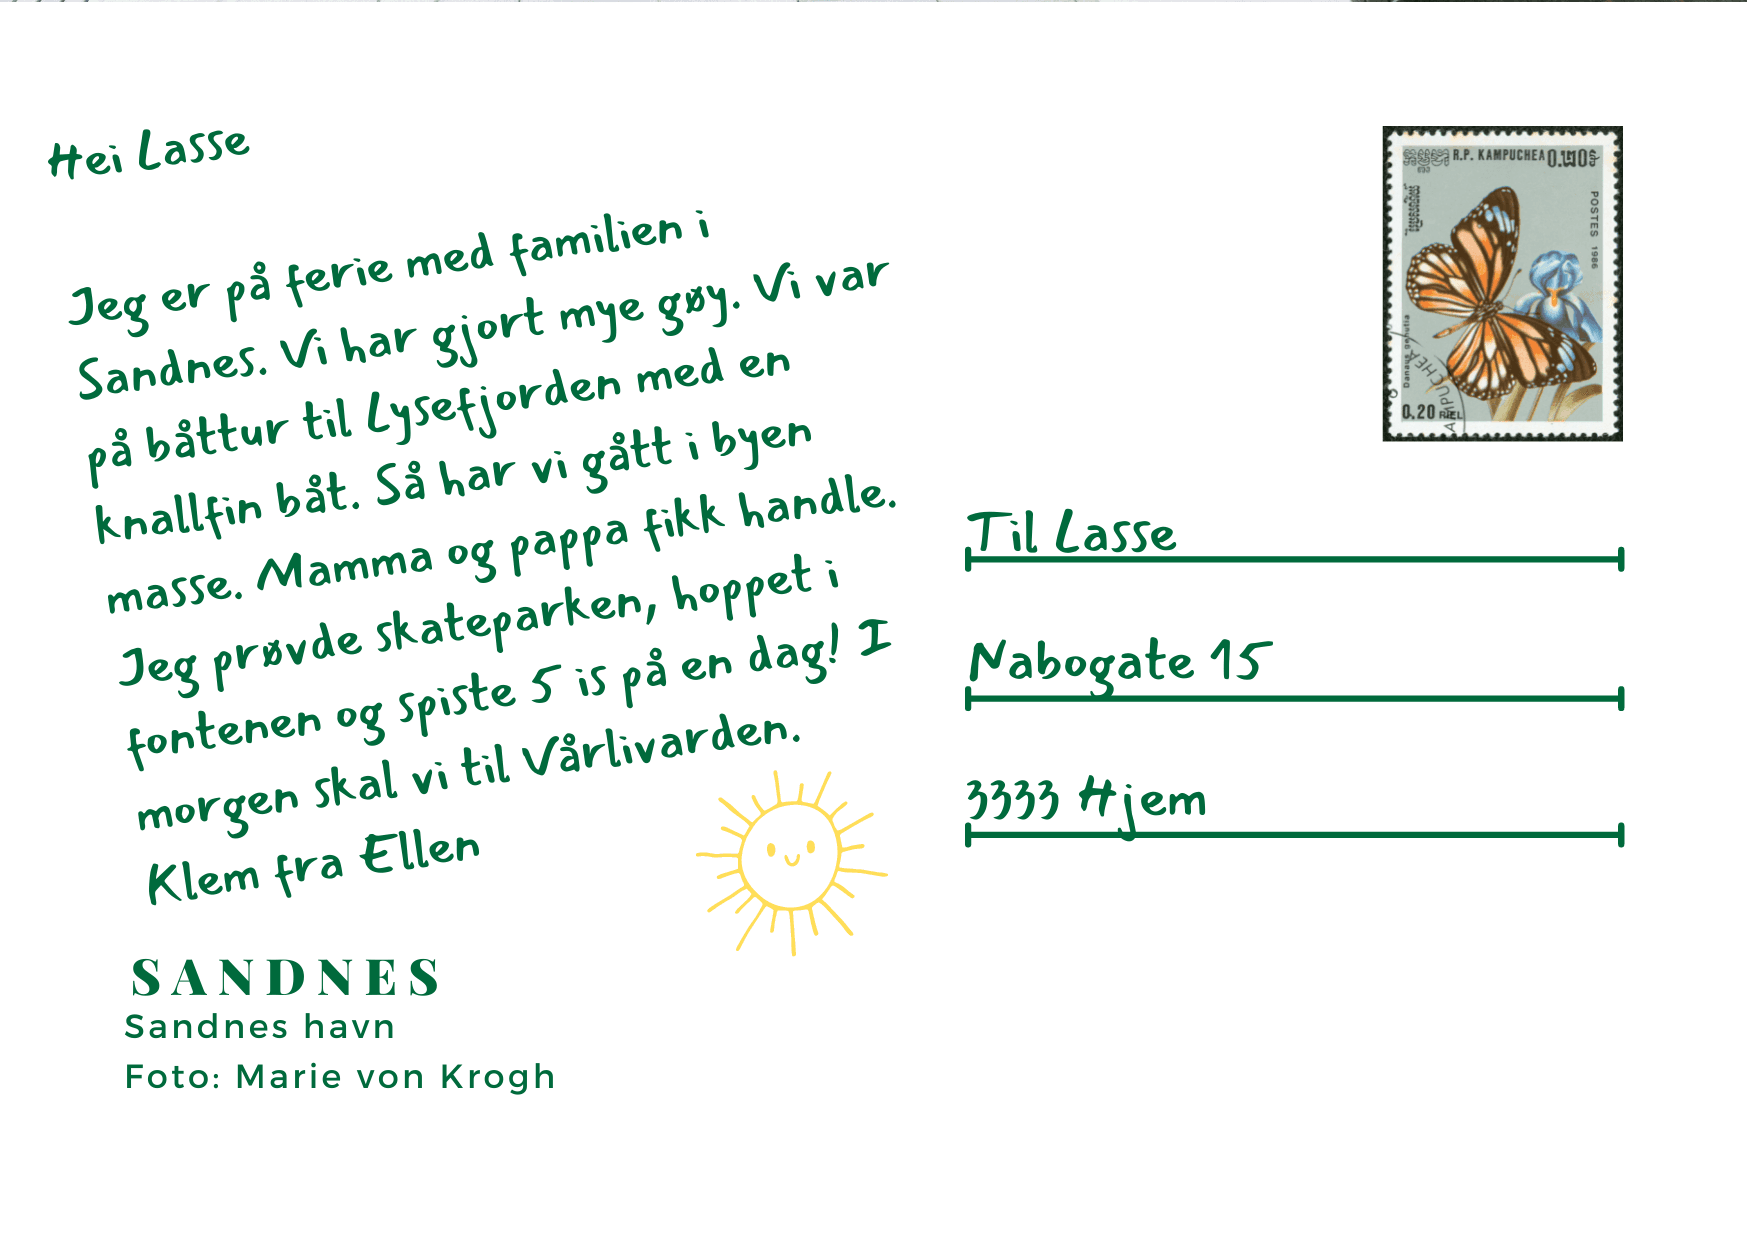 Hei Lasse
Jeg er på ferie med familien i
Sandnes. Vi har gjort mye gøy. Vi var
på båttur til Lysefjorden med en
knallfin båt. Så har vi gått i byen
masse. Mamma og pappa fikk handle.
Jeg prøvde skateparken, hoppet i
fontenen og spiste 5 is på en dag! I
morgen skal vi til Vårlivarden.
Klem fra Ellen
SANDNES
Sandnes havn
Foto: Marie von Krogh
R.P. KAMPUCHEA
POSTES 1986
Danaus genutia
0.20 RIEL
Til Lasse
Nabogate 15
3333 Hjem